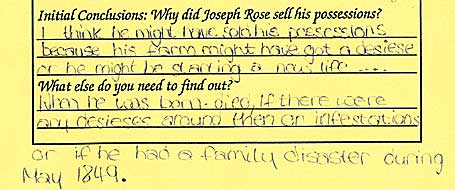 Initial Conclusions: Why did Joseph Rose sell his possessions?
I think he might have sold his possessions
because his farm might have got a desiese
or he might be starting a new life .....
What else do you need to find out?
When he was born - died, If there were
any desieses around then or infestations
or if he had a family disaster during
May 1849.